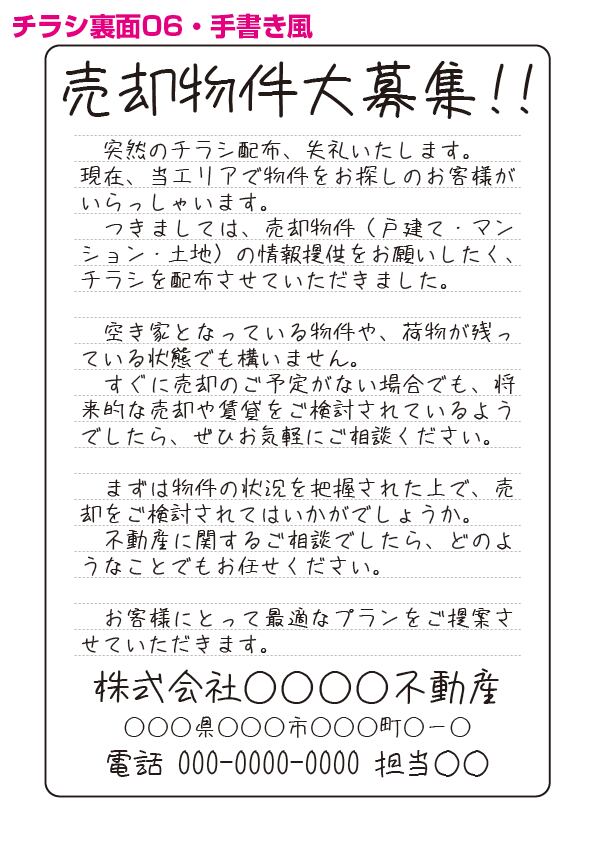 チラシ裏面06・手書き風
売却物件大募集!!
突然のチラシ配布、失礼いたします。
現在、当エリアで物件をお探しのお客様が
いらっしゃいます。
つきましては、売却物件（戸建て・マン
ション・土地）の情報提供をお願いしたく、
チラシを配布させていただきました。
空き家となっている物件や、荷物が残っ
ている状態でも構いません。
すぐに売却のご予定がない場合でも、将
来的な売却や賃貸をご検討されているよう
でしたら、ぜひお気軽にご相談ください。
まずは物件の状況を把握された上で、売
却をご検討されてはいかがでしょうか。
不動産に関するご相談でしたら、どのよ
うなことでもお任せください。
お客様にとって最適なプランをご提案さ
せていただきます。
株式会社○○○○不動産
○○○県○○○市○○○町○ー○
電話 000-0000-0000 担当○○